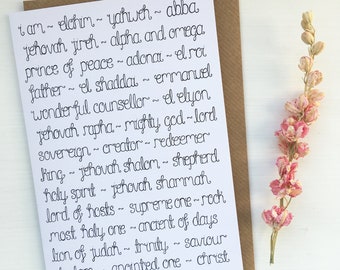 i am ~ elohim ~ yahweh ~ abba
jehovah jireh ~ alpha and omega
prince of peace ~ adonai ~ el roi
father ~ el shaddai ~ emmanuel
wonderful counsellor ~ el elyon
jehovah rapha ~ mighty god ~ lord
sovereign ~ creator ~ redeemer
king ~ jehovah shalom ~ shepherd
holy spirit ~ jehovah shammah
lord of hosts ~ supreme one ~ rock
most holy one ~ ancient of days
lion of judah ~ trinity ~ saviour
~ anointed one ~ christ